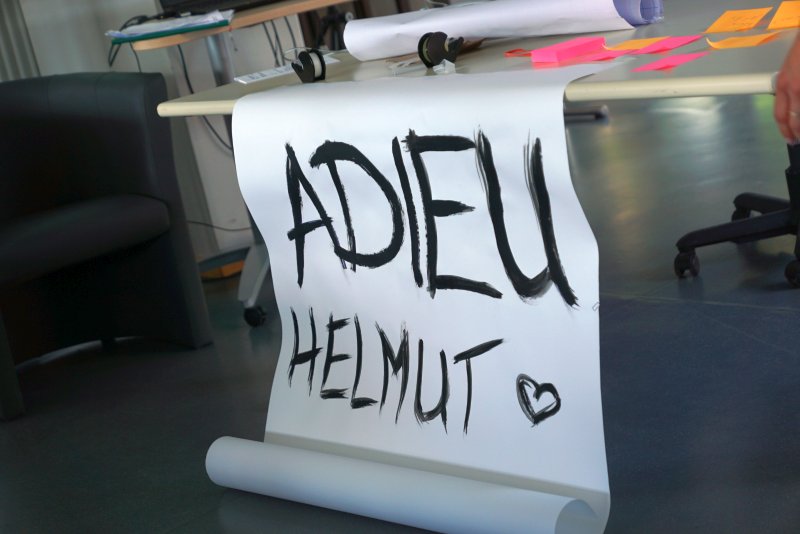 ADIEU
HELMUT